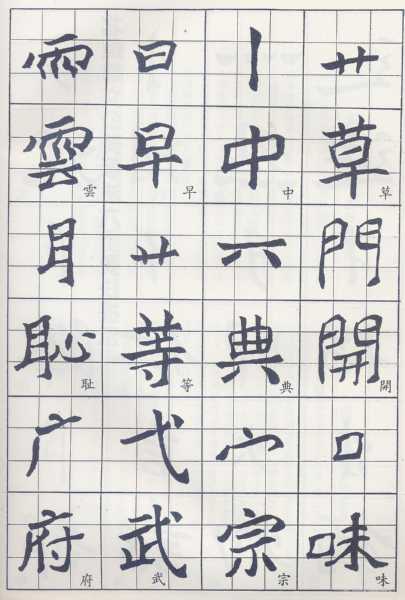 艹草草門開開口味味
丨中中六典典宀宗宗
日早早艹等等弋武武
雨雲雲耳恥耻广府府